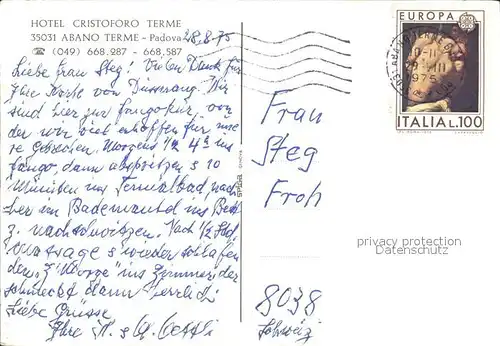 HOTEL CRISTOFORO TERME
35031 ABANO TERME - Padova
☎ (049) 668.287 - 668.587
28.8.75
Liebe Frau Steg! Vielen Dank für
Ihre Karte von Dussnang. Wir
sind hier zur Fangokur, von
der wir viel erhoffen für unse
re Gebrechen. Morgens 1/2 4h ins
Fango, dann abspritzen s 10
Minuten ins Termalbad, nach
her im Bademantel ins Bett
z. nachschwitzen. Nach 1/2 Std
Massage s wieder schlafen
den Z'Morge ins Zimmer, der
schmeckt dann herrlich
Liebe Grüsse
Ihre
Frau
Steg
Froh
8038
Schweiz
EUROPA
1975
ITALIA L.100
privacy protection
Datenschutz